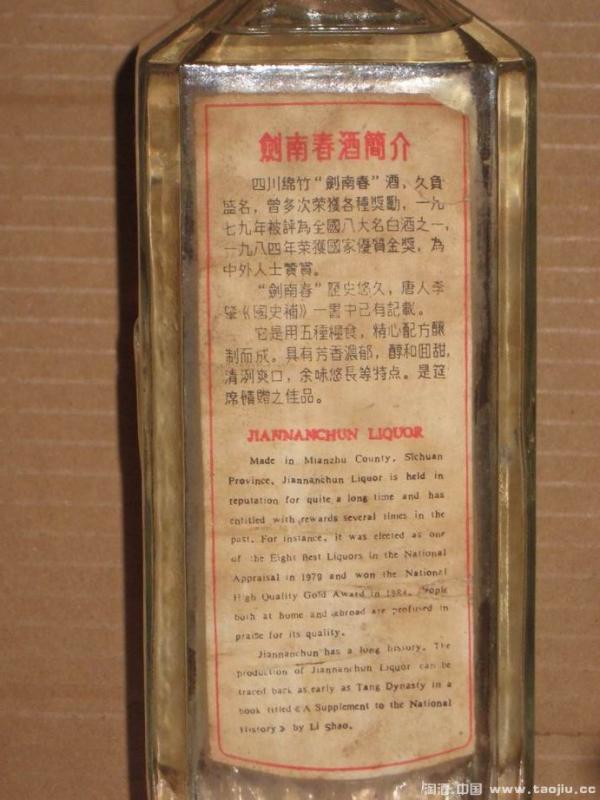 劍南春酒簡介
四川綿竹“劍南春”酒，久負
盛名，曾多次荣獲各種獎勵，一九
七九年被評為全國八大名白酒之一，
一九八四年荣獲國家優質金獎，為
中外人士賛賞。
“劍南春”歷史悠久，唐人李
肇《國史補》一書中已有記載。
它是用五種糧食，精心配方釀
制而成。具有芳香濃郁，醇和回甜，
清洌爽口，余味悠長等特点。是筵
席饋贈之佳品。
JIANNANCHUN LIQUOR
Made in Mianzhu County, Sichuan
Province, Jiannanchun Liquor is held in
reputation for quite a long time and has
entitled with rewards several times in the
past. For instance, it was elected as one
of the Eight Best Liquors in the National
Appraisal in 1979 and won the National
High Quality Gold Award in 1984. People
both at home and abroad are profused in
praise for its quality.
Jiannanchun has a long history. The
production of Jiannanchun Liquor can be
traced back as early as Tang Dynasty in a
book titled《A Supplement to the National
History》by Li Shao.
淘酒.中国 www.taojiu.cc